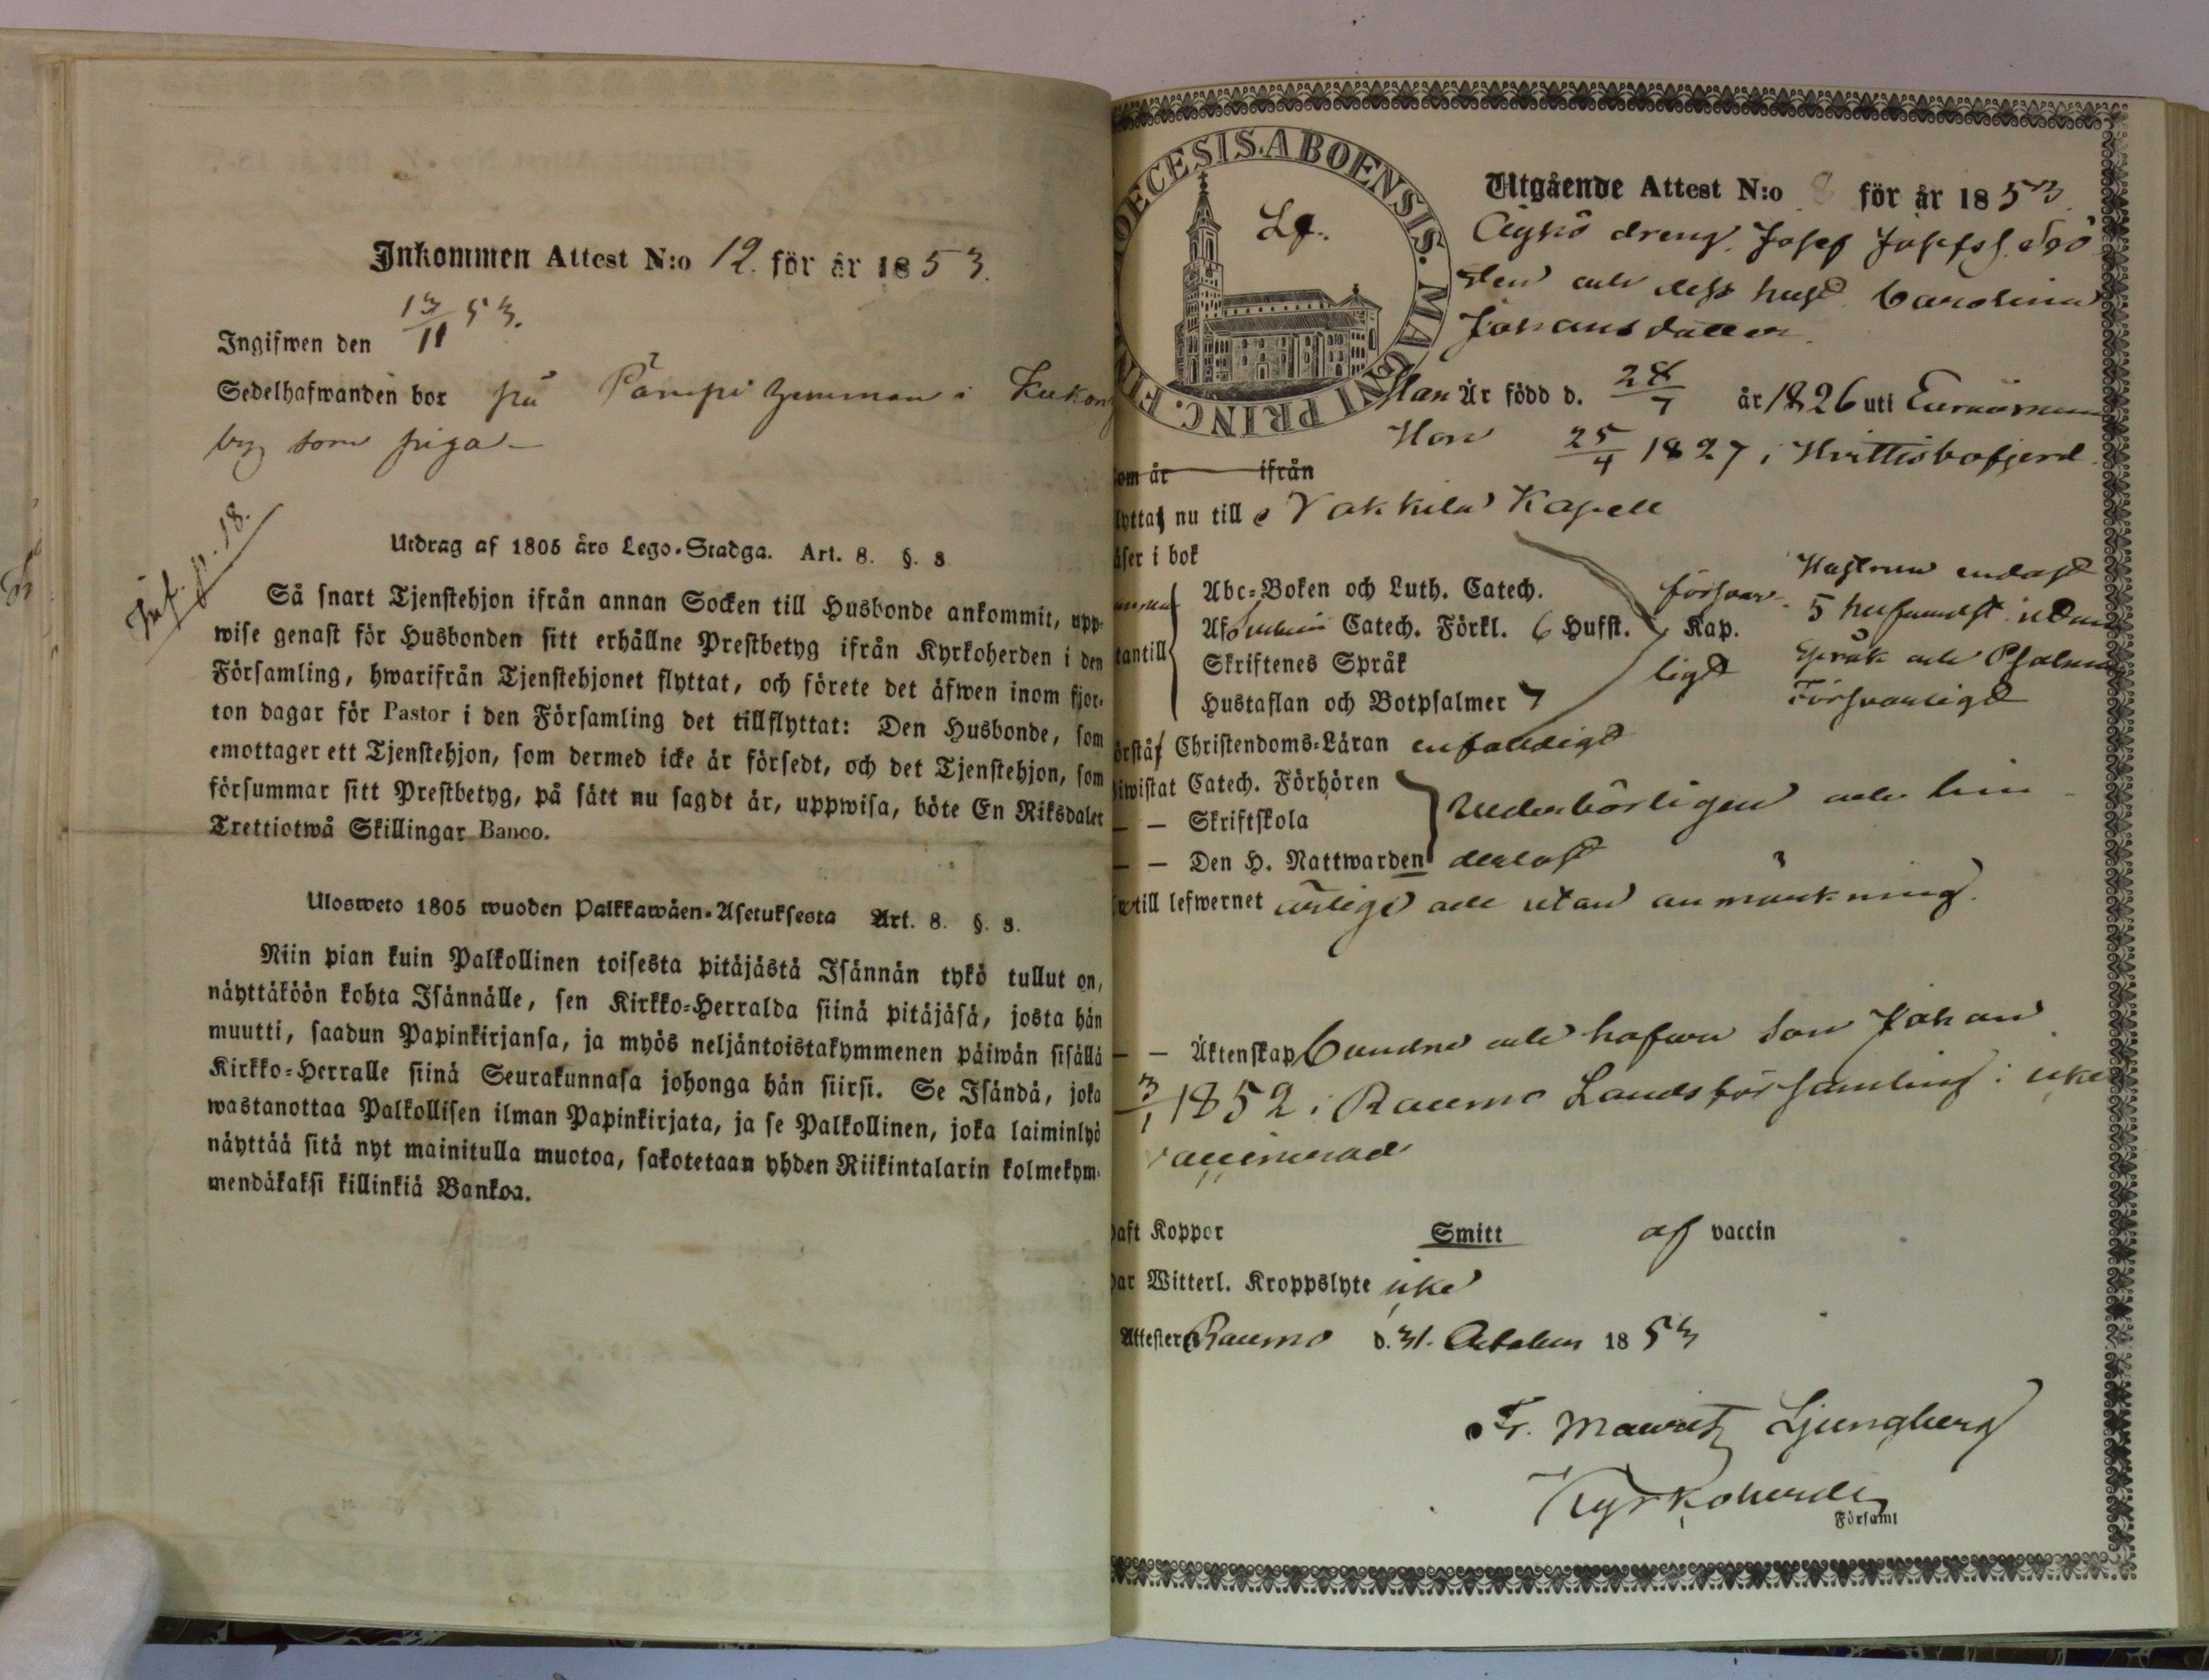 Inkommen Attest N:o 12. för år 1853.
Ingifwen den 13/11 53.
Sedelhafwanden bor på Pämpi hemman i
by som piga
Inf. p. 18.
Utdrag af 1805 års Lego-Stadga. Art. 8. §. 8
Så snart Tjenstehjon ifrån annan Socken till Husbonde ankommit, upp-
wise genast för Husbonden sitt erhållne Prestbetyg ifrån Kyrkoherden i den
Församling, hwarifrån Tjenstehjonet flyttat, och förete det äfwen inom fjor-
ton dagar för Pastor i den Församling det tillflyttat: Den Husbonde, som
emottager ett Tjenstehjon, som dermed icke är försedt, och det Tjenstehjon, som
försummar sitt Prestbetyg, på sätt nu sagdt är, uppwisa, böte En Riksdaler
Trettiotwå Skillingar Banco.
Ulosweto 1805 wuoden Palkkawäen-Asetuksesta Art. 8. §. 8.
Niin pian kuin Palkollinen toisesta pitäjästä Isännän tykö tullut on,
näyttäköön kohta Isännälle, sen Kirkko-Herralda siinä pitäjäsä, josta hän
muutti, saadun Papinkirjansa, ja myös neljäntoistakymmenen päiwän sisällä
Kirkko-Herralle siinä Seurakunnasa johonga hän siirsi. Se Isändä, joka
wastanottaa Palkollisen ilman Papinkirjata, ja se Palkollinen, joka laiminlyö
näyttää sitä nyt mainitulla muotoa, sakotetaan yhden Riikintalarin kolmekym-
mendäkaksi killinkiä Bankoa.
DIOECESIS. ABOENSIS. MAGNI PRINC. FIN
Utgående Attest N:o 8 för år 1853
dreng Josef Josefss.
och dess hust. Carolina
Johansdotter
Han Är född d. 28/7 år 1826 uti
Hon 25/4 1827 i Hvittisbofjerd
om är ifrån
lyttaf nu till Vakkila Kapell
äser i bok
Abc-Boken och Luth. Catech.
Af Catech. Förkl. 6 Hufst. 7 Kap.
försvar-
ligt
tantill
Skriftenes Språk
Hustaflan och Botpsalmer 7
Hustrun endast
5 hufvudst. utan
Språk och Psalmer
Försvarligt
örståf Christendoms-Läran enfaldigt
iwistat Catech. Förhören
— — Skriftskola
— — Den H. Nattwarden
vederbörligen och hin-
derlöst
till lefwernet ärlige och utan anmärkning.
— — Äktenskap bundne och hafva son Johan
3/1 1852 i Raumo Landsförsamling: icke
vaccinerad
haft Koppor Smitt af vaccin
har Witterl. Kroppslyte icke
Attester. Raumo d. 31. October 1853
Fr. Mauritz Ljungberg
Kyrkoherde
Församl